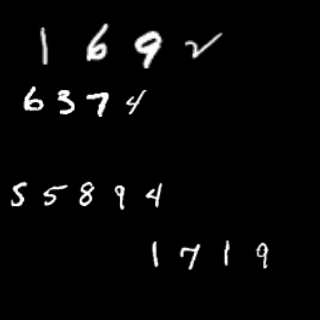 1 6 9 2
6 3 7 4
5 5 8 9 4
1 7 1 9